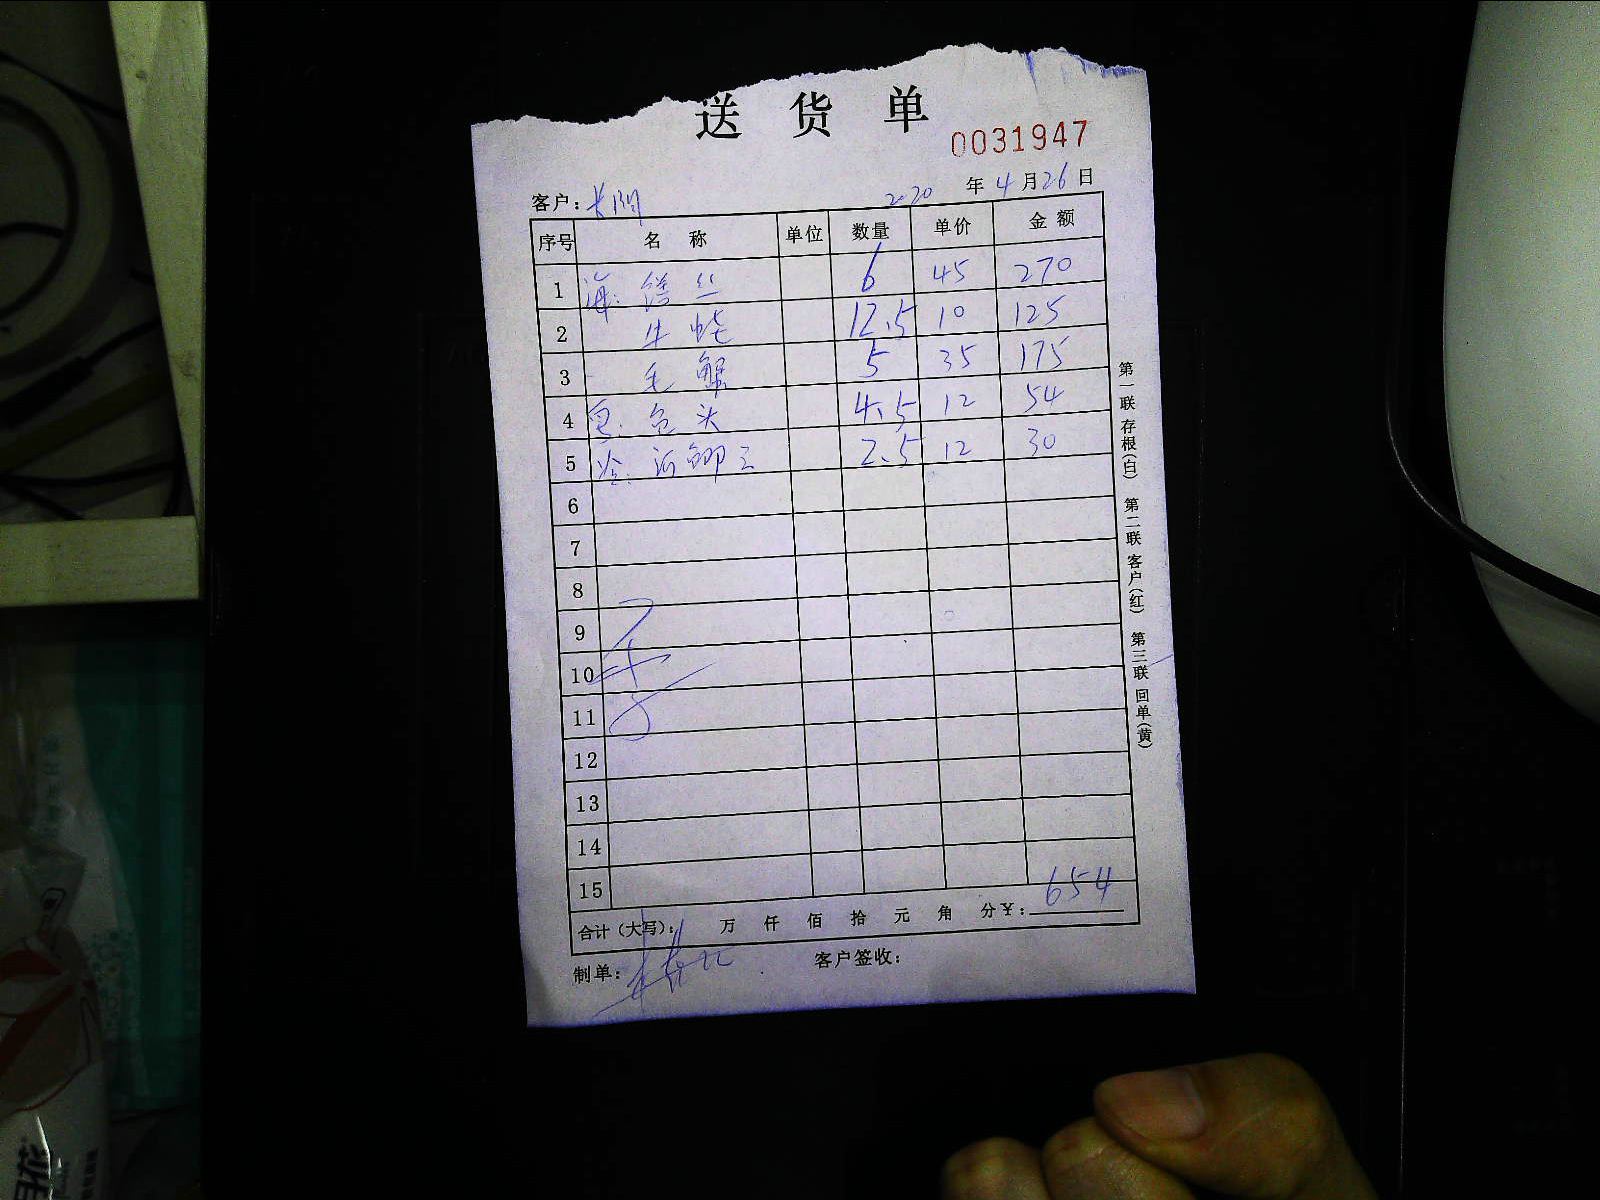 送 货 单
0031947
客户: 长阳 2020 年 4 月 26 日
序号 名 称 单位 数量 单价 金 额
1 海: 6 45 270
2 牛蛙 12.5 10 125
3 毛蟹 5 35 175
4 包头 4.5 12 54
5 冷: 2.5 12 30
6
7
8
9
10
11
12
13
14
15
合计(大写): 万 仟 佰 拾 元 角 分 ¥: 654
制单: 客户签收:
第一联 存根(白) 第二联 客户(红) 第三联 回单(黄)